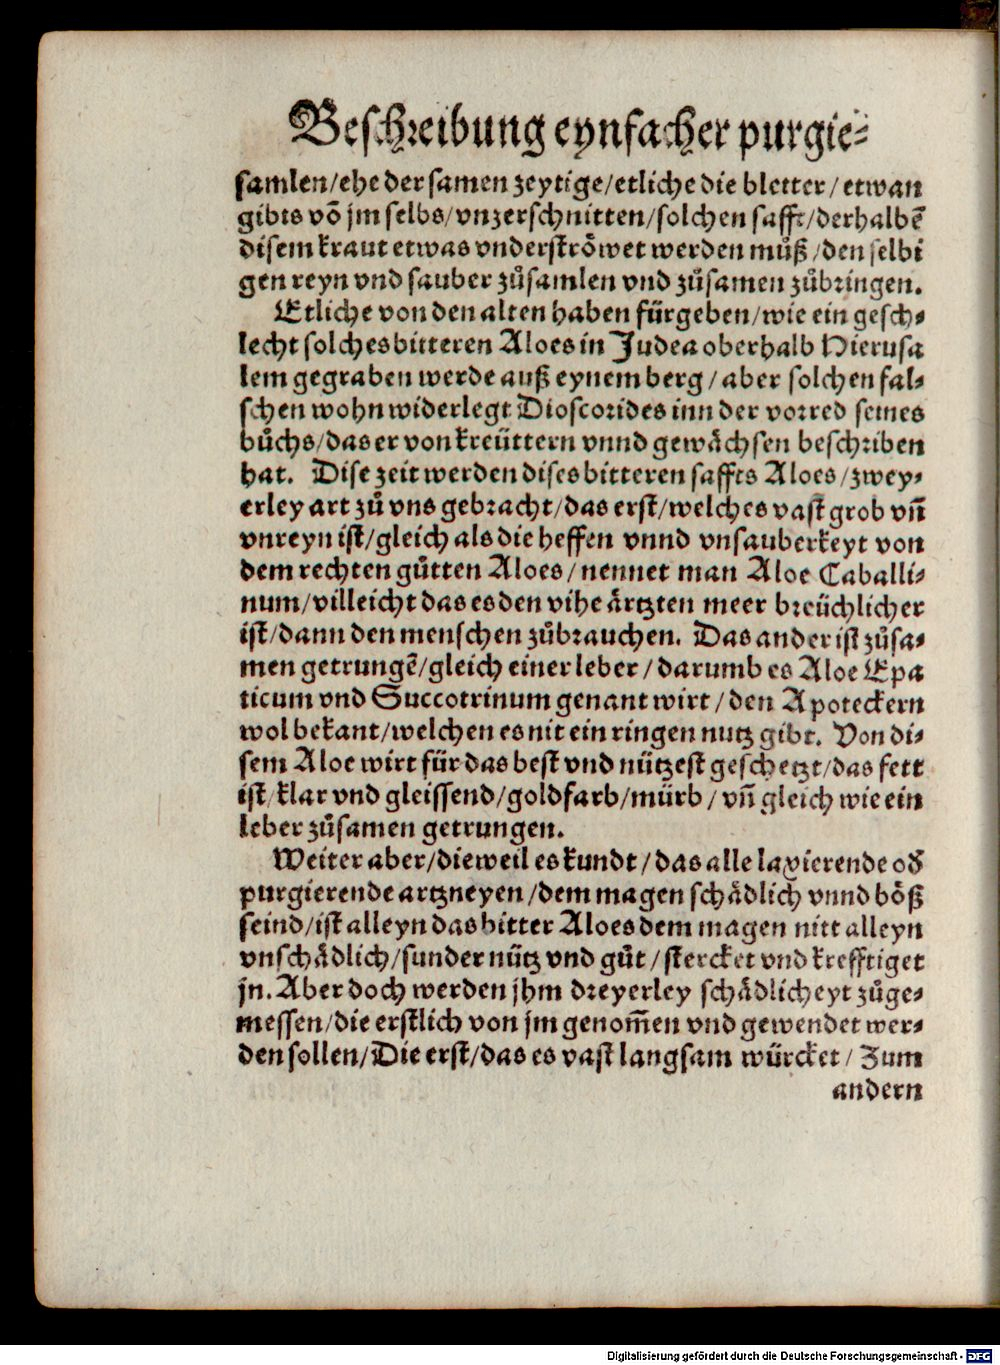 Beschreibung eynfacher purgie⸗
samlen/ehe der samen zeytige/etliche die bletter/etwan
gibts võ jm selbs/vnzerschnitten/solchen safft/derhalbẽ
disem kraut etwas vnderströwet werden můß/den selbi
gen reyn vnd sauber zůsamlen vnd zůsamen zůbringen.
Etliche von den alten haben fürgeben/wie ein gesch⸗
lecht solches bitteren Aloes in Judea oberhalb Hierusa
lem gegraben werde auß eynem berg/aber solchen fal⸗
schen wohn widerlegt Dioscorides inn der vorred seines
bůchs/das er von kreüttern vnnd gewåchsen beschriben
hat. Dise zeit werden dises bitteren saffts Aloes/zwey⸗
erley art zů vns gebracht/das erst/welches vast grob vñ
vnreyn ist/gleich als die heffen vnnd vnsauberkeyt von
dem rechten gůtten Aloes/nennet man Aloe Caballi⸗
num/villeicht das es den vihe årtzten meer breüchlicher
ist/dann den menschen zůbrauchen. Das ander ist zůsa⸗
men getrungẽ/gleich einer leber/darumb es Aloe Epa
ticum vnd Succotrinum genant wirt/den Apoteckern
wol bekant/welchen es nit ein ringen nutz gibt. Von di⸗
sem Aloe wirt für das best vnd nützest geschetzt/das fett
ist/klar vnd gleissend/goldfarb/mürb/vñ gleich wie ein
leber zůsamen getrungen.
Weiter aber/dieweil es kundt/das alle laxierende oď
purgierende artzneyen/dem magen schådlich vnnd böß
seind/ist alleyn das bitter Aloes dem magen nitt alleyn
vnschådlich/sunder nütz vnd gůt/stercket vnd krefftiget
jn. Aber doch werden jhm dreyerley schådlicheyt zůge⸗
messen/die erstlich von jm genom̃en vnd gewendet wer⸗
den sollen/Die erst/das es vast langsam würcket/Zum
andern
Digitalisierung gefördert durch die Deutsche Forschungsgemeinschaft - DFG